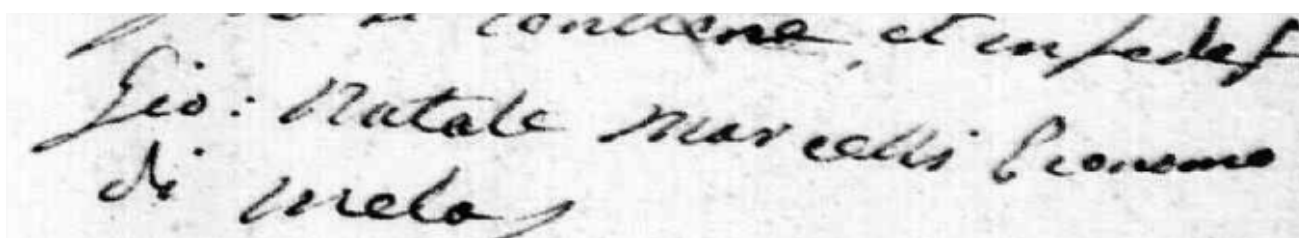 si contiene, et in fede
Gio: Natale Marcelli Economo
di Mela